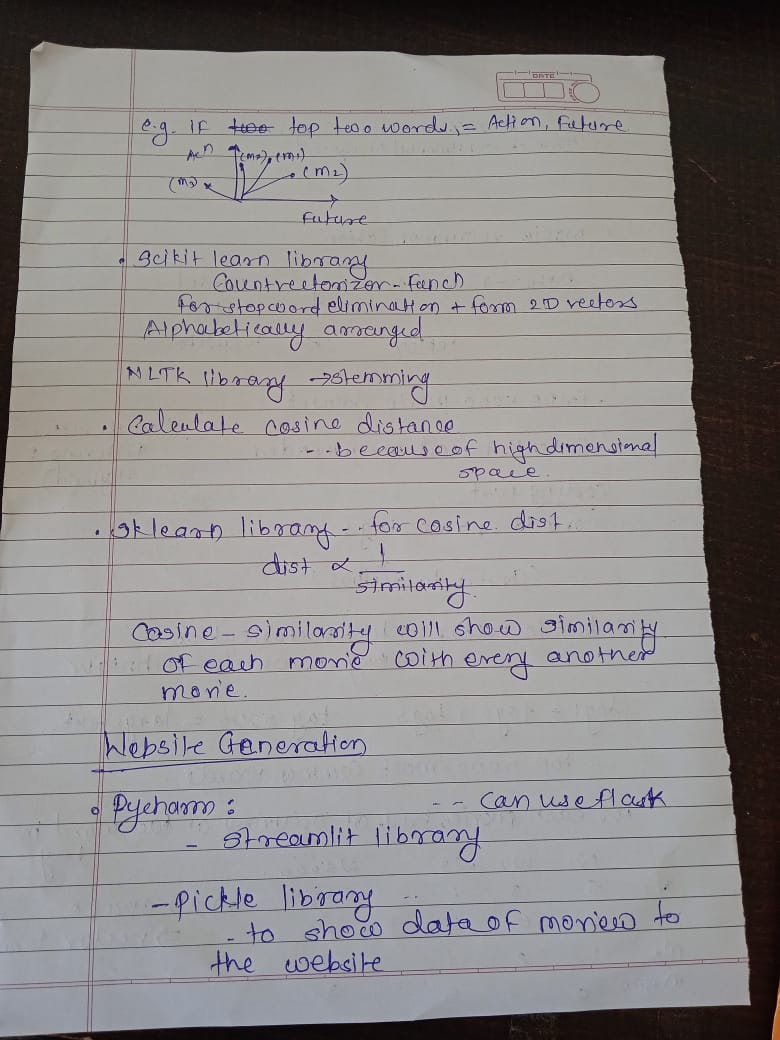 DATE
e.g. if too top two words = Action, Future
Acn (m0) (m1)
(m2)
(m3)
Future
• Scikit learn library
Countvectorizer - funcn
for stopword elimination + form 2D vectors
Alphabetically arranged
NLTK library → stemming
• Calculate cosine distance
-- because of high dimensional
space.
• Sklearn library -- for cosine dist.
dist ∝ 1
similarity
Cosine - similarity will show similarity
of each movie with every another
movie.
Website Generation
• Pycharm : -- can use flask
- streamlit library
- pickle library --
- to show data of movies to
the website